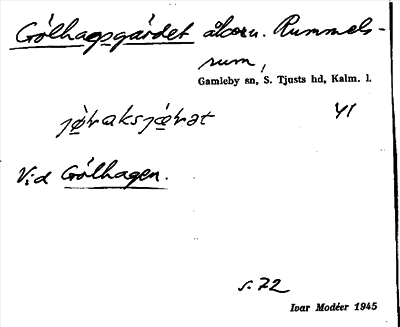 Gölhagsgärdet åkorn. Rummels-
rum,
Gamleby sn, S. Tjusts hd, Kalm. l.
Vid Gölhagen.
s. 72
Ivar Modéer 1945